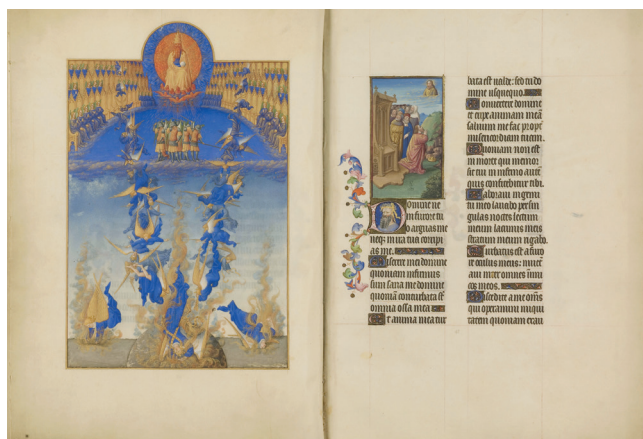 Domine ne
in furore tu
o arguas me
neq; in ira tua corripi
as me.
Miserere mei domine
quoniam infirmus
sum sana me domine
quoniā conturbata sūt
omnia ossa mea
Et anima mea tur
bata est ualde: sed tu do
mine usquequo.
Conuertere domine
et eripe animam meā
saluum me fac propt
misericordiam tuam.
Quoniam non est
in morte qui memor
sit tui in inferno autē
quis confitebitur tibi.
Laboraui in gemi
tu meo lauabo per sin
gulas noctes lectum
meum lacrimis meis
stratum meum rigabo.
Turbatus est a furo
re oculus meus: inuete
raui inter omnes inimi
cos meos.
Discedite a me omēs
qui operamini iniqui
tatem quoniam exau